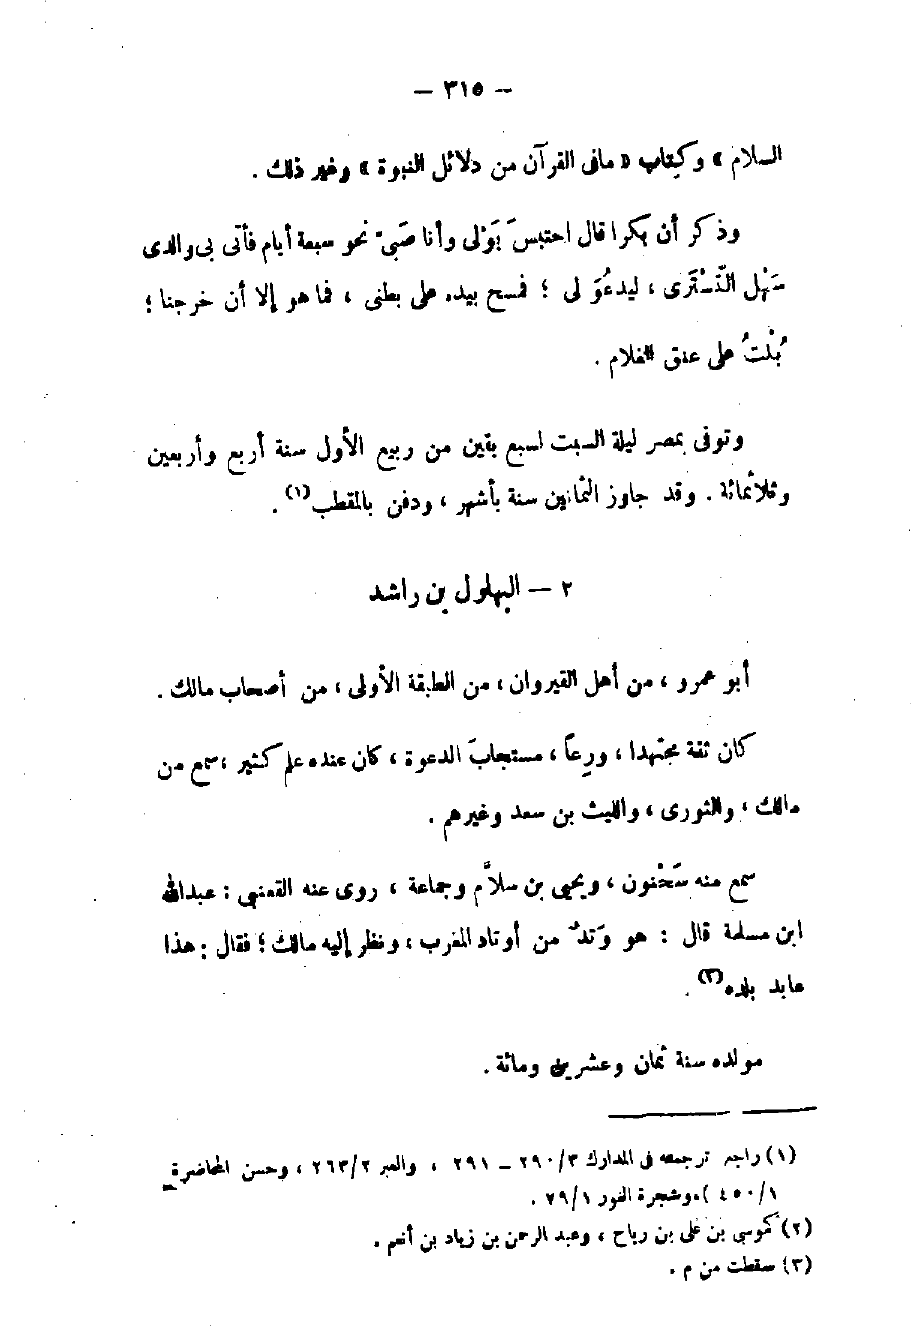 — ٣١٥ —
السلام » وكتاب « مافى القرآن من دلائل النبوة » وغير ذلك .
وذكر أن بكرا قال احتبسَ بَوْلى وأنا صَبىّ نحو سبعة أيام فأتى بى والدى
سَهْل التُّسْتَرى ، ليدعُوَ لى ؛ فمسح بيده على بطنى ، فما هو إلا أن خرجنا ؛
بُلْتُ على عنق الغلام .
وتوفى بمصر ليلة السبت لسبع بقين من ربيع الأول سنة أربع وأربعين
وثلاثمائة . وقد جاوز الثمانين سنة بأشهر ، ودفن بالمقطب (١) .
٢ — البهلول بن راشد
أبو عمرو ، من أهل القيروان ، من الطبقة الأولى ، من أصحاب مالك .
كان ثقة مجتهدا ، ورِعاً ، مستجابَ الدعوة ، كان عنده علم كثير ، سمع من
مالك ، والثورى ، والليث بن سعد وغيرهم .
سمع منه سَحْنون ، ويحيى بن سلاَّم وجماعة ، روى عنه القعنبى : عبدالله
ابن مسلمة قال : هو وَتدٌ من أوتاد المغرب ، ونظر إليه مالك ؛ فقال : هذا
عابد بلده (٣) .
مولده سنة ثمان وعشرين ومائة .
(١) راجع ترجمته فى المدارك ٣/ ٢٩٠ — ٢٩١ ، والعبر ٢/ ٢٦٣ ، وحسن المحاضرة
١/ ٤٥٠ ) ، وشجرة النور ١/ ٧٩ .
(٢) كموسى بن على بن رباح ، وعبد الرحمن بن زياد بن أنعم .
(٣) سقطت من م .